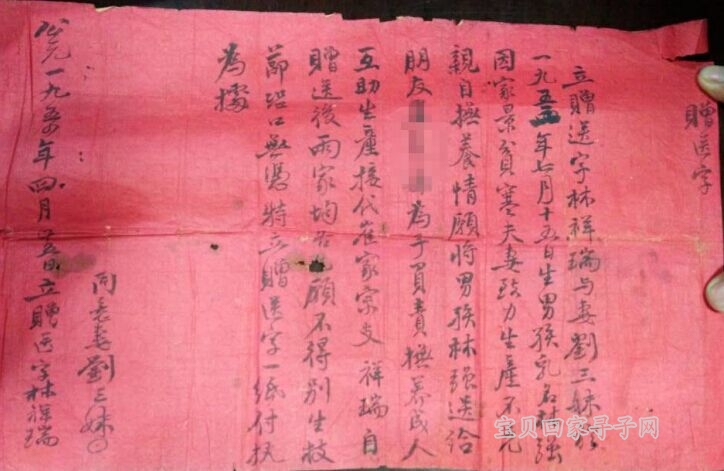 贈送字
立贈送字林祥瑞与妻劉三妹
一九五 年七月十五日生男孩乳名林強
因家景貧寒夫妻致力生產不
親自撫養情願將男孩林強送給
朋友 為子負責撫养成人
互助生產接代崔家宗支祥瑞自
贈送後兩家均 願不得別生枝
節恐口無憑特立贈送字一紙付执
為據
同意妻劉三妹
公元一九五 年四月 立贈送字林祥瑞
宝贝回家寻子网